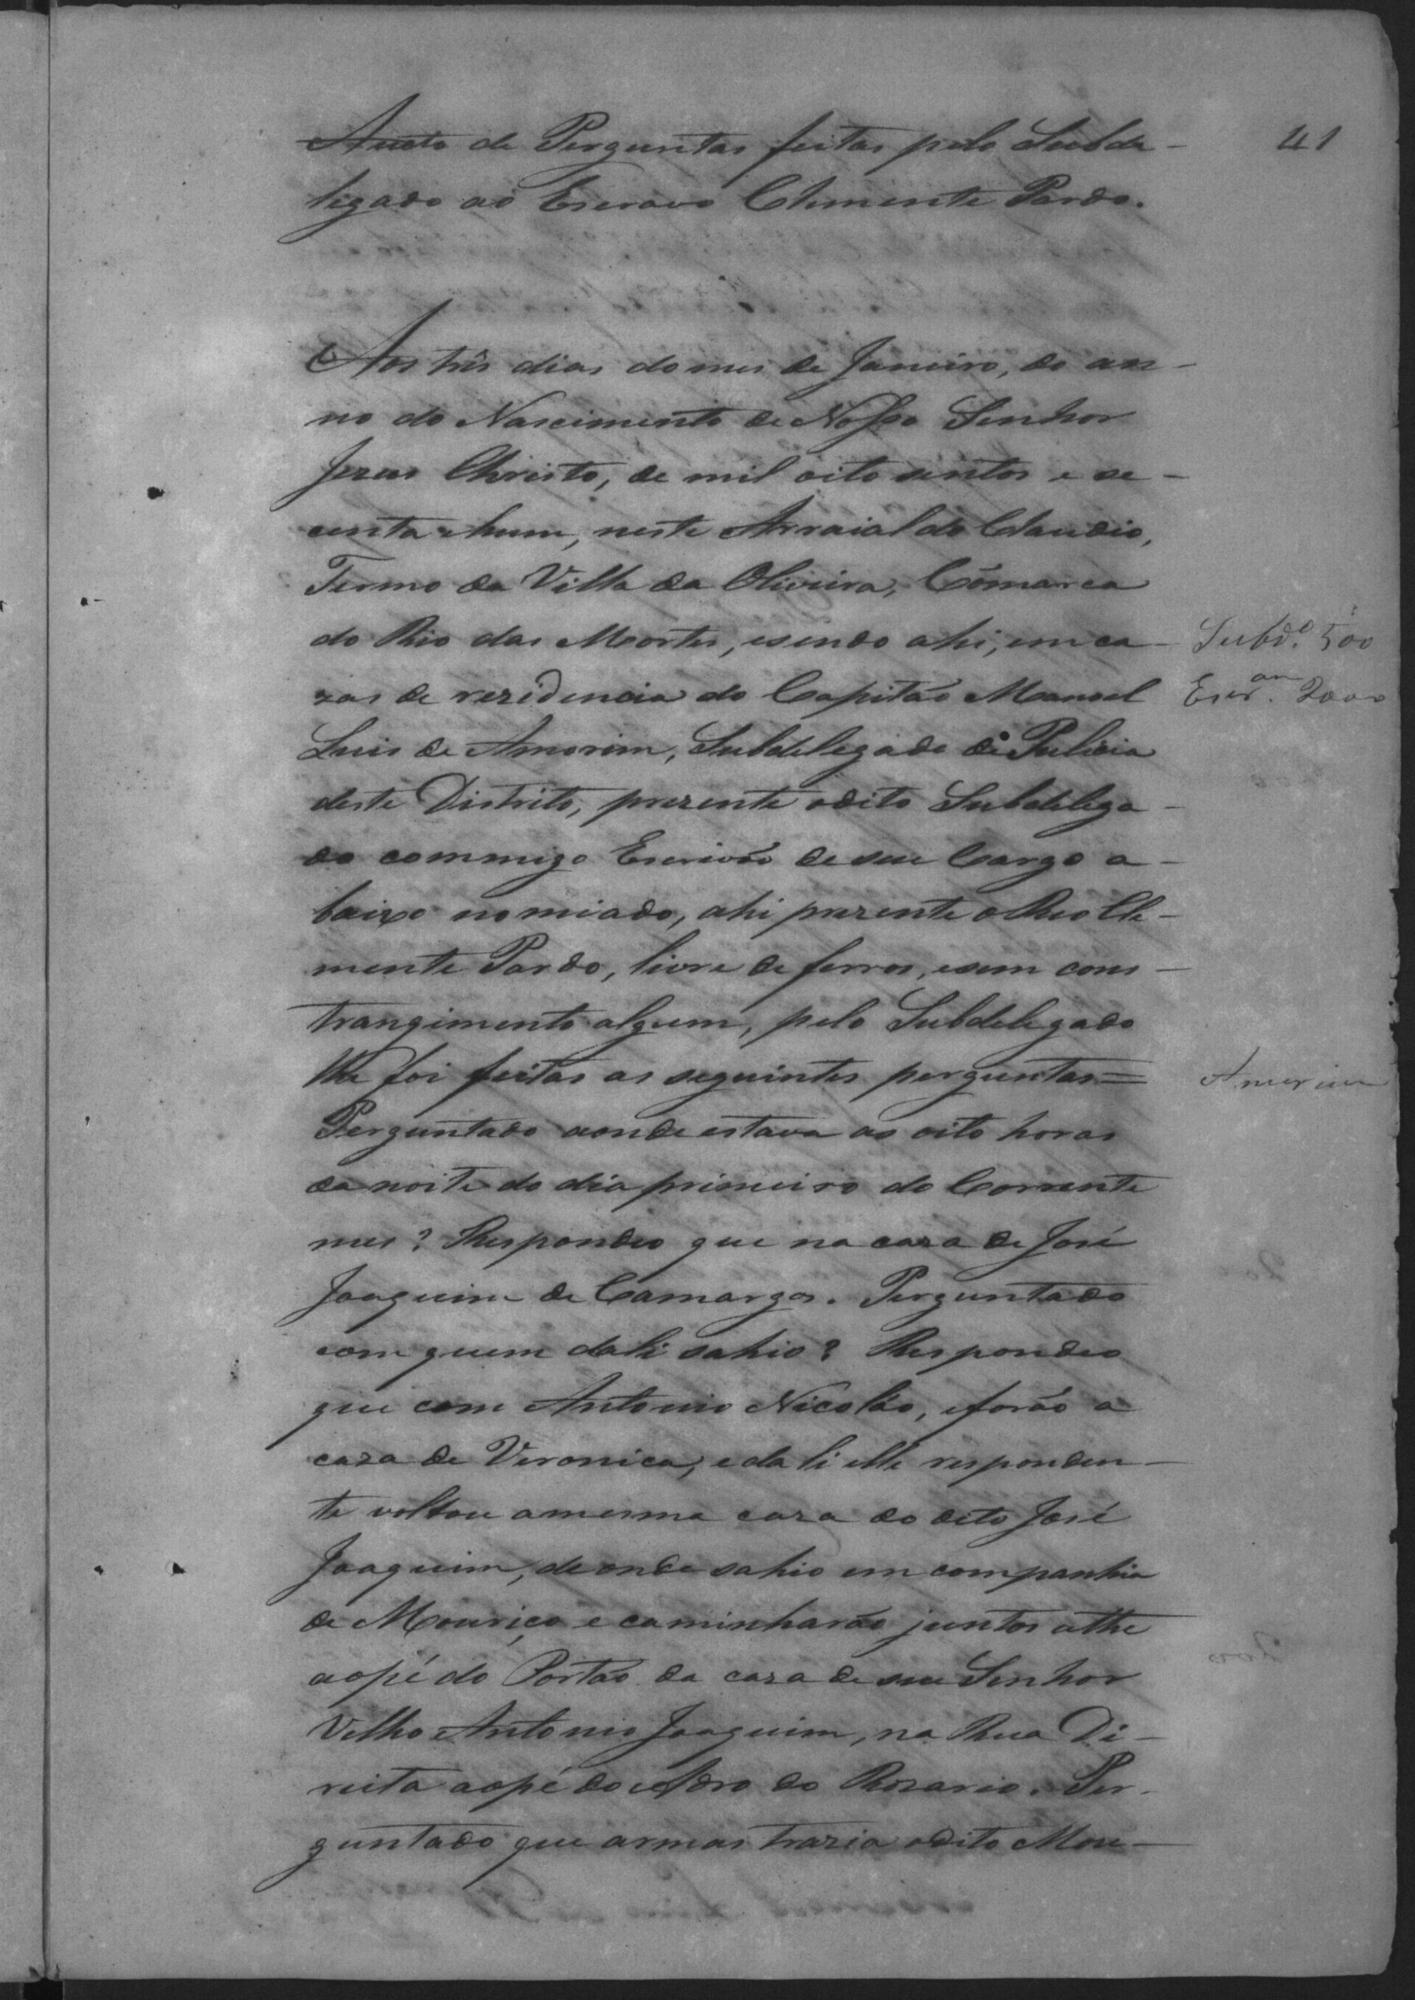 41
Aucto de Perguntas feitas pelo Subde-
legado ao Escravo Clemente Pardo.
Aos três dias do mes de Janeiro, do an-
no do Nascimento de Nosso Senhor
Jezus Christo, de mil oito sentos e se-
centa e hum, neste Arraial do Claudio,
Termo da Villa da Oliveira, Cômarca
do Rio das Mortes, esendo ahi, em ca-
zas de rezidencia do Capitão Manoel
Luis de Amorim, Subdelegado de Pulicia
deste Distrito, prezente odito Subdelega-
do commigo Escrivão de seu Cargo a-
baixo nomiado, ahi prezente o Reo Cle-
mente Pardo, livre de ferros, esem cons-
trangimento algum, pelo Subdelegado
lhe foi feitas as seguintes perguntas=
Perguntado aonde estava as oito horas
da noite do dia primeiro do Corrente
mes? Respondeo que na caza de José
Joaquim de Camargos. Perguntado
com quem dali sahio? Respondeo
que com Antonio Nicoláo, eforão a
caza de Veronica, e dali elle responden-
te voltou amesma caza do dito José
Joaquim, de onde sahio em companhia
de Mouriço e caminharão juntos athe
aopé do Portão da caza de seu Senhor
Velho Antonio Joaquim, na Rua Di-
reita aopé do Adro do Rozario. Per-
guntado que armas trazia odito Mou-
Subdo. 500
Escram. 2000
Amorim